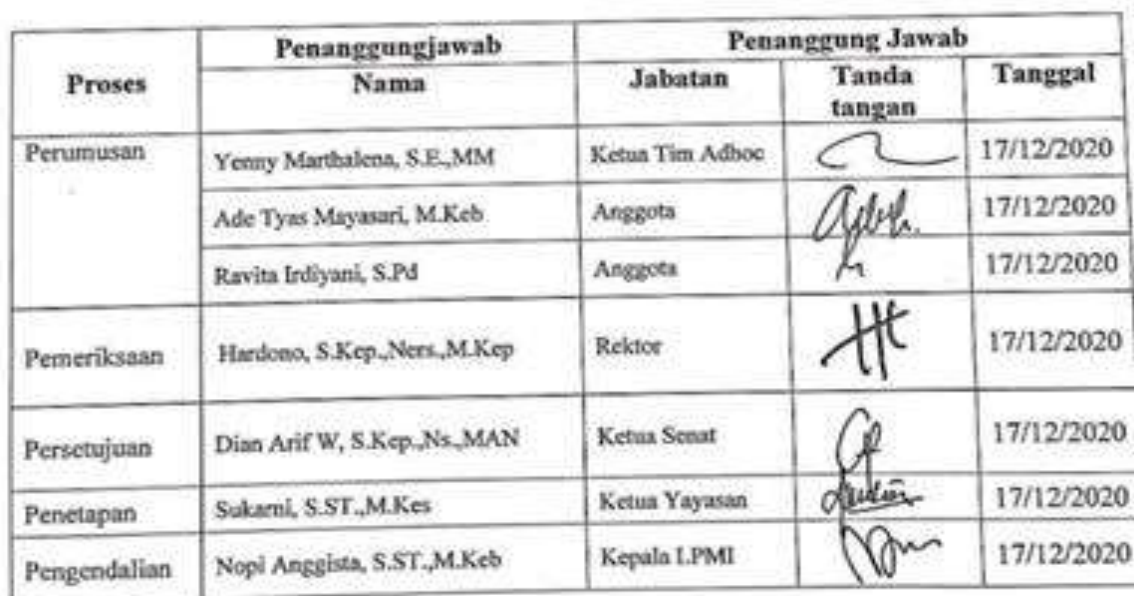 Proses Penanggungjawab Penanggung Jawab
Nama Jabatan Tanda tangan Tanggal
Perumusan Yenny Marthalena, S.E.,MM Ketua Tim Adhoc 17/12/2020
Ade Tyas Mayasari, M.Keb Anggota 17/12/2020
Ravita Irdiyani, S.Pd Anggota 17/12/2020
Pemeriksaan Hardono, S.Kep.,Ners.,M.Kep Rektor 17/12/2020
Persetujuan Dian Arif W, S.Kep.,Ns.,MAN Ketua Senat 17/12/2020
Penetapan Sukarni, S.ST.,M.Kes Ketua Yayasan 17/12/2020
Pengendalian Nopi Anggista, S.ST.,M.Keb Kepala LPMI 17/12/2020